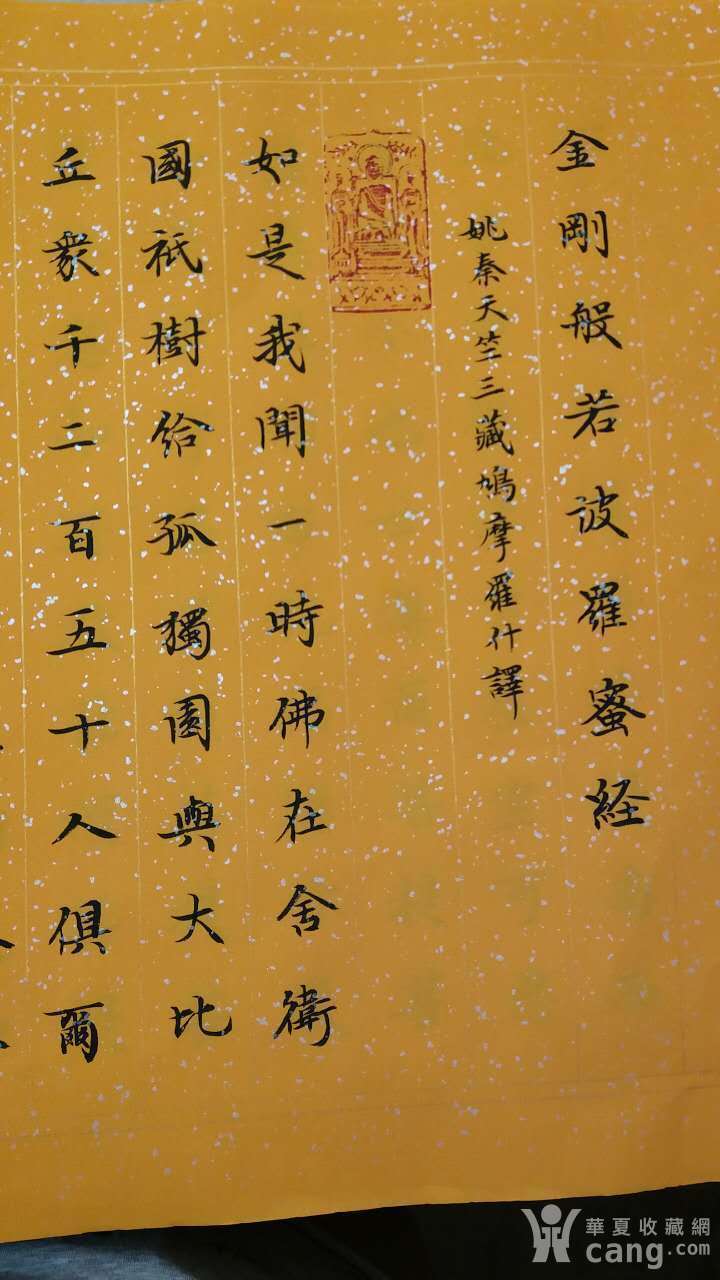 金剛般若波羅蜜経
姚秦天竺三藏鳩摩羅什譯
如是我聞一時佛在舍衛
國祇樹給孤獨園與大比
丘衆千二百五十人俱爾
華夏收藏網
cang.com